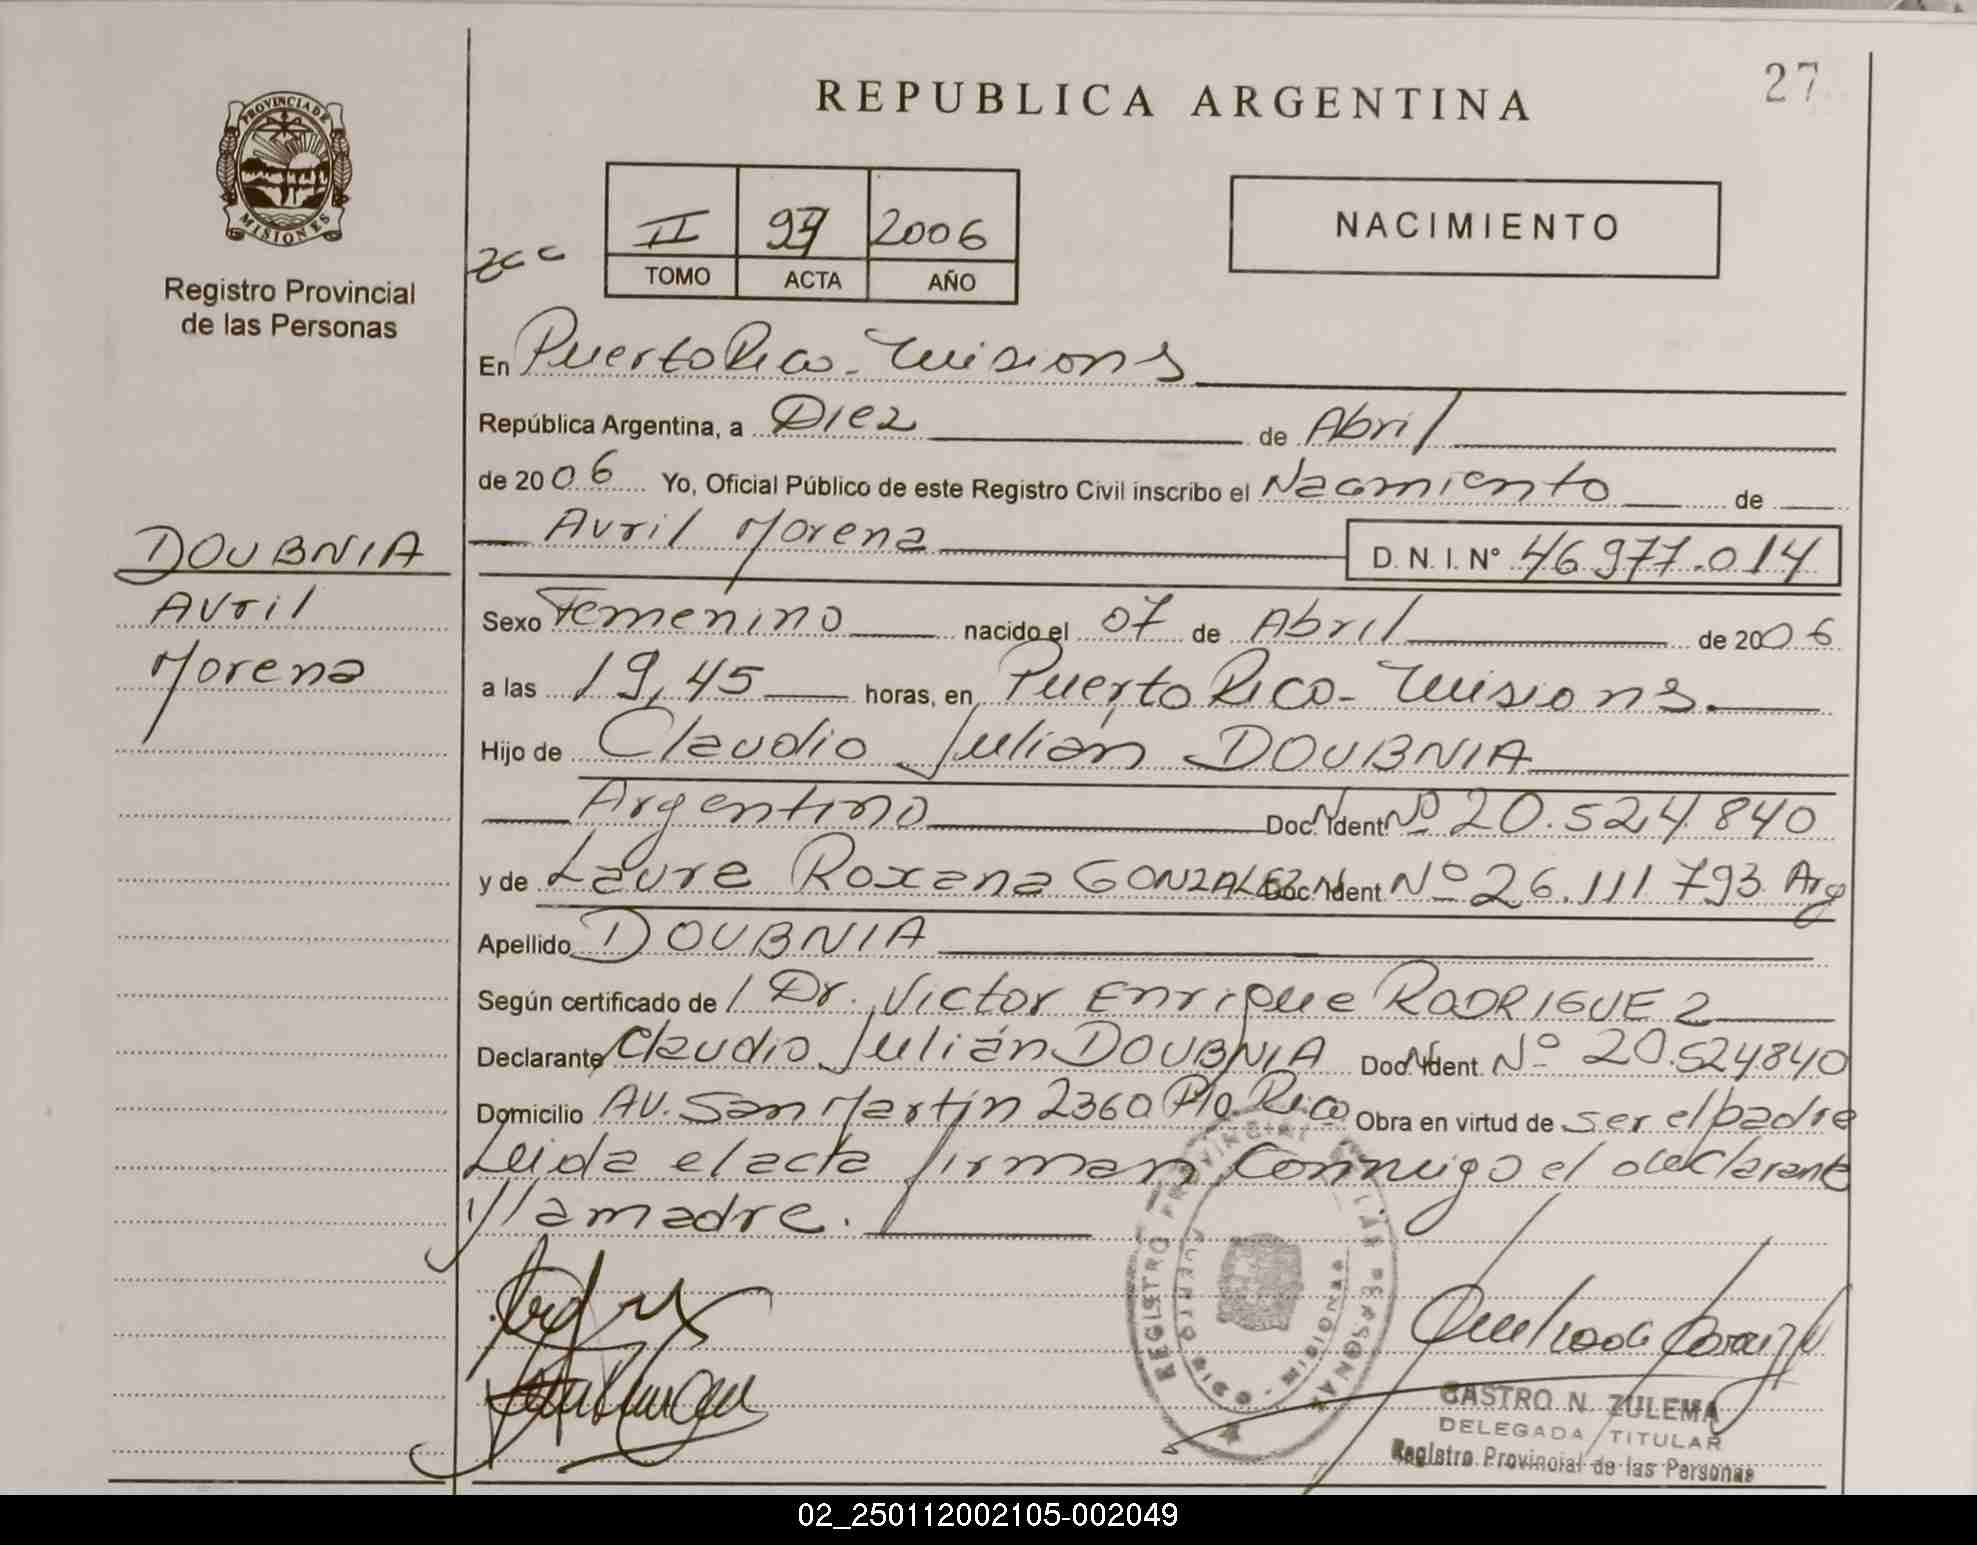 27
REPUBLICA ARGENTINA
PROVINCIA DE
MISIONES
Registro Provincial
de las Personas
II 2006
TOMO ACTA AÑO
NACIMIENTO
En Puerto Rico - Misiones
República Argentina, a Diez de Abril
de 2006 Yo, Oficial Público de este Registro Civil inscribo el Nacimiento de
Avril Morena D. N. I. N° 46.977.014
DOUBNIA
Avril
Morena
Sexo Femenino nacido el 07 de Abril de 2006
a las 19,45 horas, en Puerto Rico - Misiones.
Hijo de Claudio Julián DOUBNIA
Argentino Doc. Ident Nº 20.524.840
y de Laura Roxana GONZALEZ Doc. Ident Nº 26.111.793 Arg
Apellido DOUBNIA
Según certificado de Dr. Victor Enrique RODRIGUEZ
Declarante Claudio Julián DOUBNIA Doc. Ident Nº 20.524840
Domicilio AV. San Martín 2360 Pto. Rico Obra en virtud de ser el padre
Leida el acta firman conmigo el declarante
y la madre.
REGISTRO PROVINCIAL DE LAS PERSONAS
CASTRO N. ZULEMA
DELEGADA TITULAR
Registro Provincial de las Personas
02_250112002105-002049